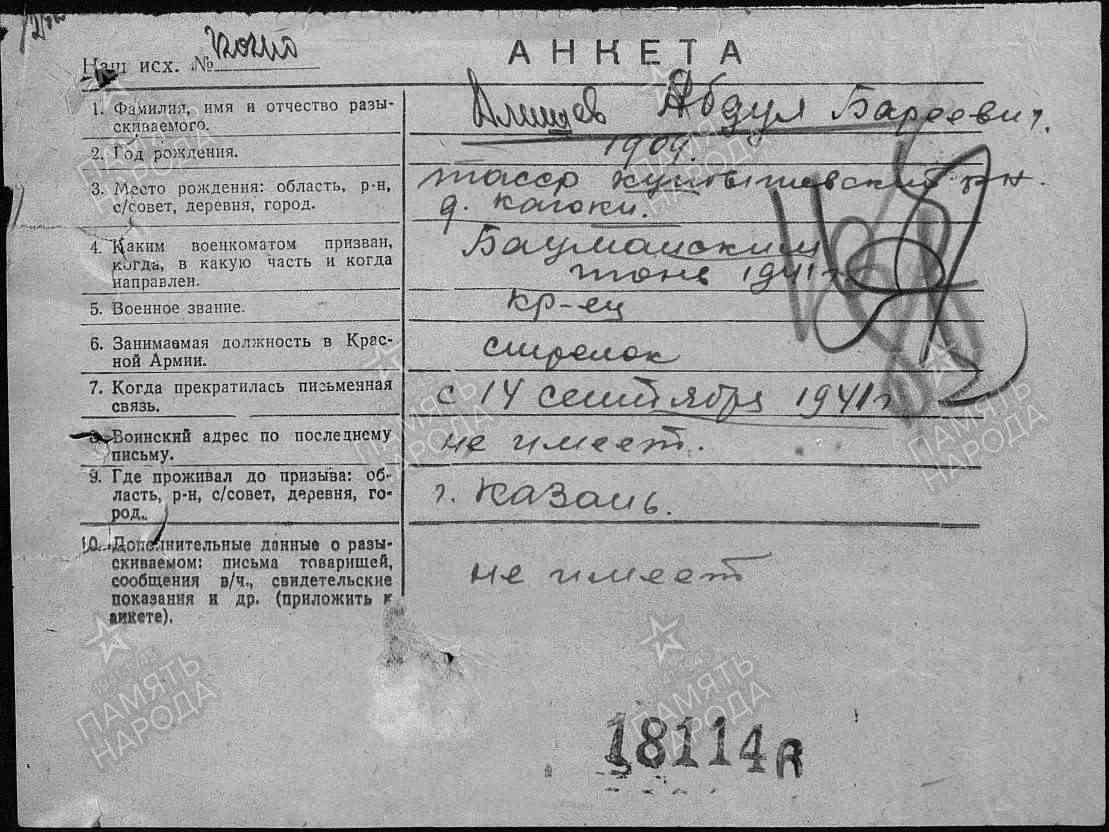 АНКЕТА
Наш исх. № копия
1. Фамилия, имя и отчество разы-
скиваемого.
Алишев Абдул Бареевич.
2. Год рождения.
1909.
3. Место рождения: область, р-н,
с/совет, деревня, город.
ТАССР Куйбышевский р-н.
д.
4. Каким военкоматом призван,
когда, в какую часть и когда
направлен.
Бауманским
июне 1941 г.
5. Военное звание.
кр-ец
6. Занимаемая должность в Крас-
ной Армии.
стрелок
7. Когда прекратилась письменная
связь.
с 14 сентября 1941 г.
8. Воинский адрес по последнему
письму.
не имеет.
9. Где проживал до призыва: об-
ласть, р-н, с/совет, деревня, го-
род.
г. Казань.
10. Дополнительные данные о разы-
скиваемом: письма товарищей,
сообщения в/ч., свидетельские
показания и др. (приложить к
анкете).
не имеет
18114
ПАМЯТЬ
НАРОДА